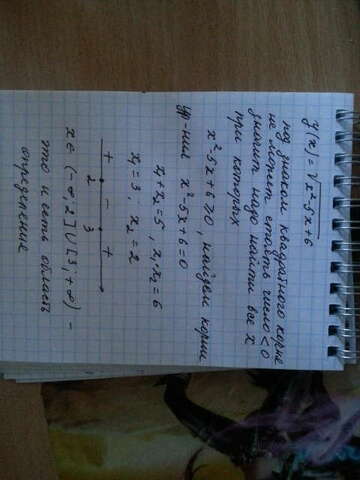 y(x) = √x²-5x+6
под знаком квадратного корня
не может стоять число < 0
значит надо найти все x
при которых
x²-5x+6 ≥ 0, найдем корни
ур-ния x²-5x+6=0
x₁+x₂=5, x₁x₂=6
x₁=3, x₂=2
+ - +
2 3
x∈(-∞;2]U[3;+∞) -
это и есть область
определения